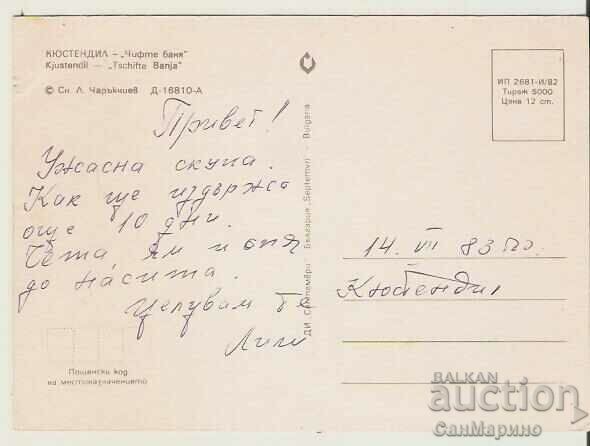 КЮСТЕНДИЛ – „Чифте баня"
Kjustendil — „Tschifte Banja"
© Сн. Л. Чаръкчиев Д-16810-А
ИП 2681-И/82
Тираж 5000
Цена 12 ст.
Привет!
Ужасна скука.
Как ще издържа
още 10 дни.
Чета, ям и спя
до насита.
Целувам те
14. VII 83 год.
Кюстендил
ДИ „Септември" България „Septemvri" Bulgaria
Пощенски код
на местоназначението
BALKAN
auction
СанМарино